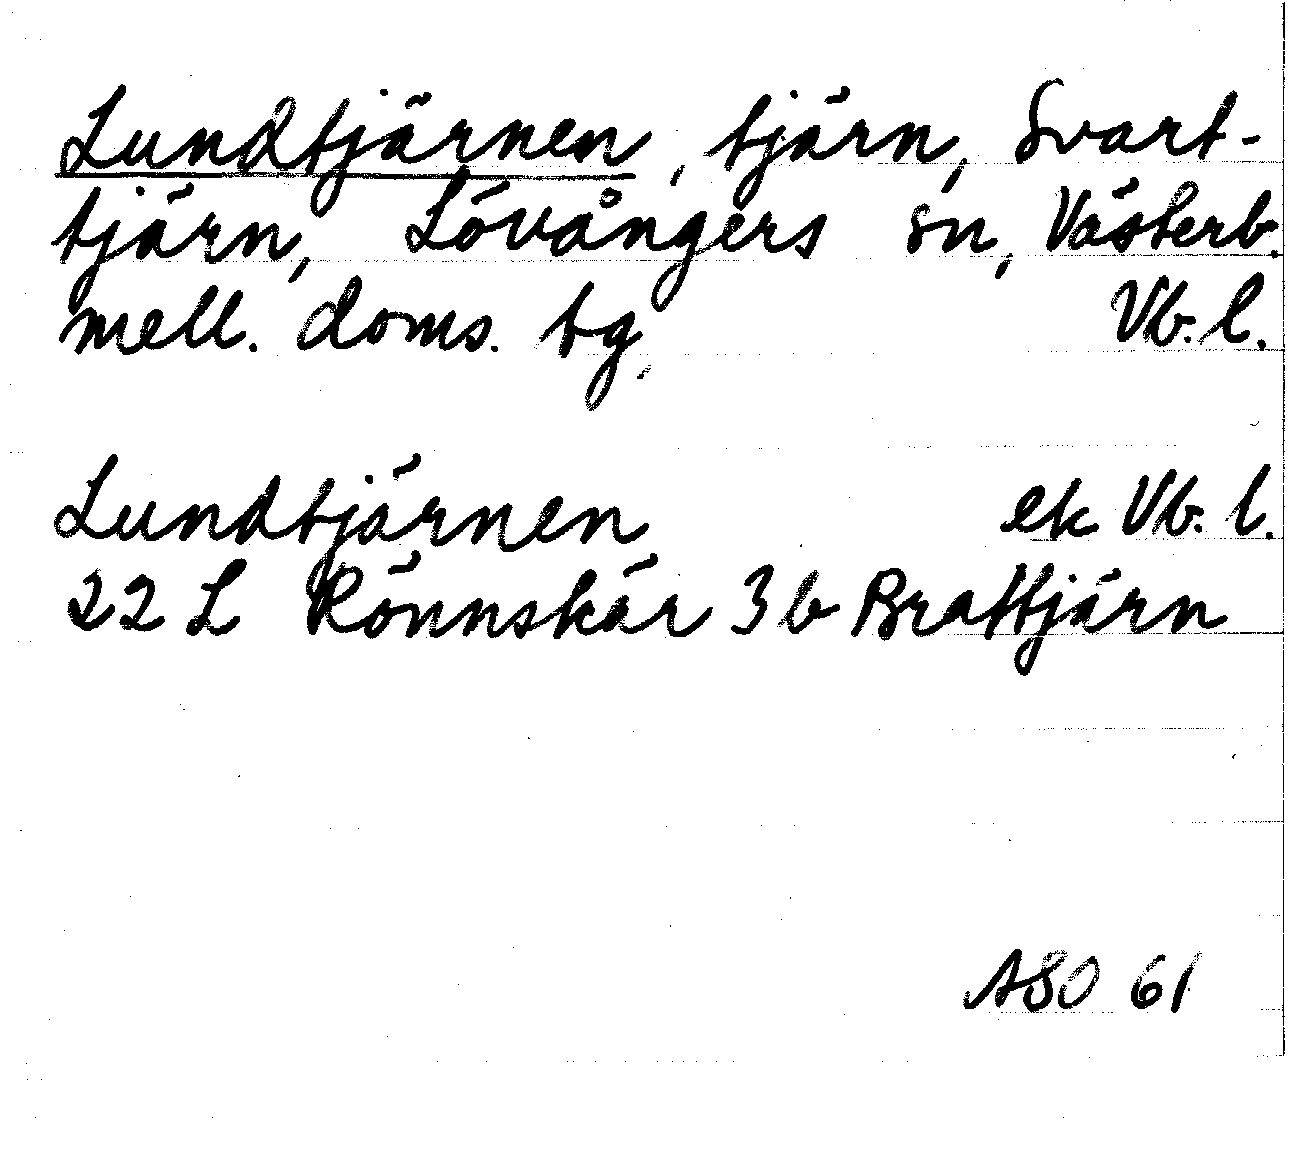 Lundtjärnen, tjärn, Svart-
tjärn, Lövångers sn, Västerb.
mell. doms. tg, Vb. l.
Lundtjärnen ek Vb. l.
22 L Rönnskär 3 b Brattjärn
ASO 61